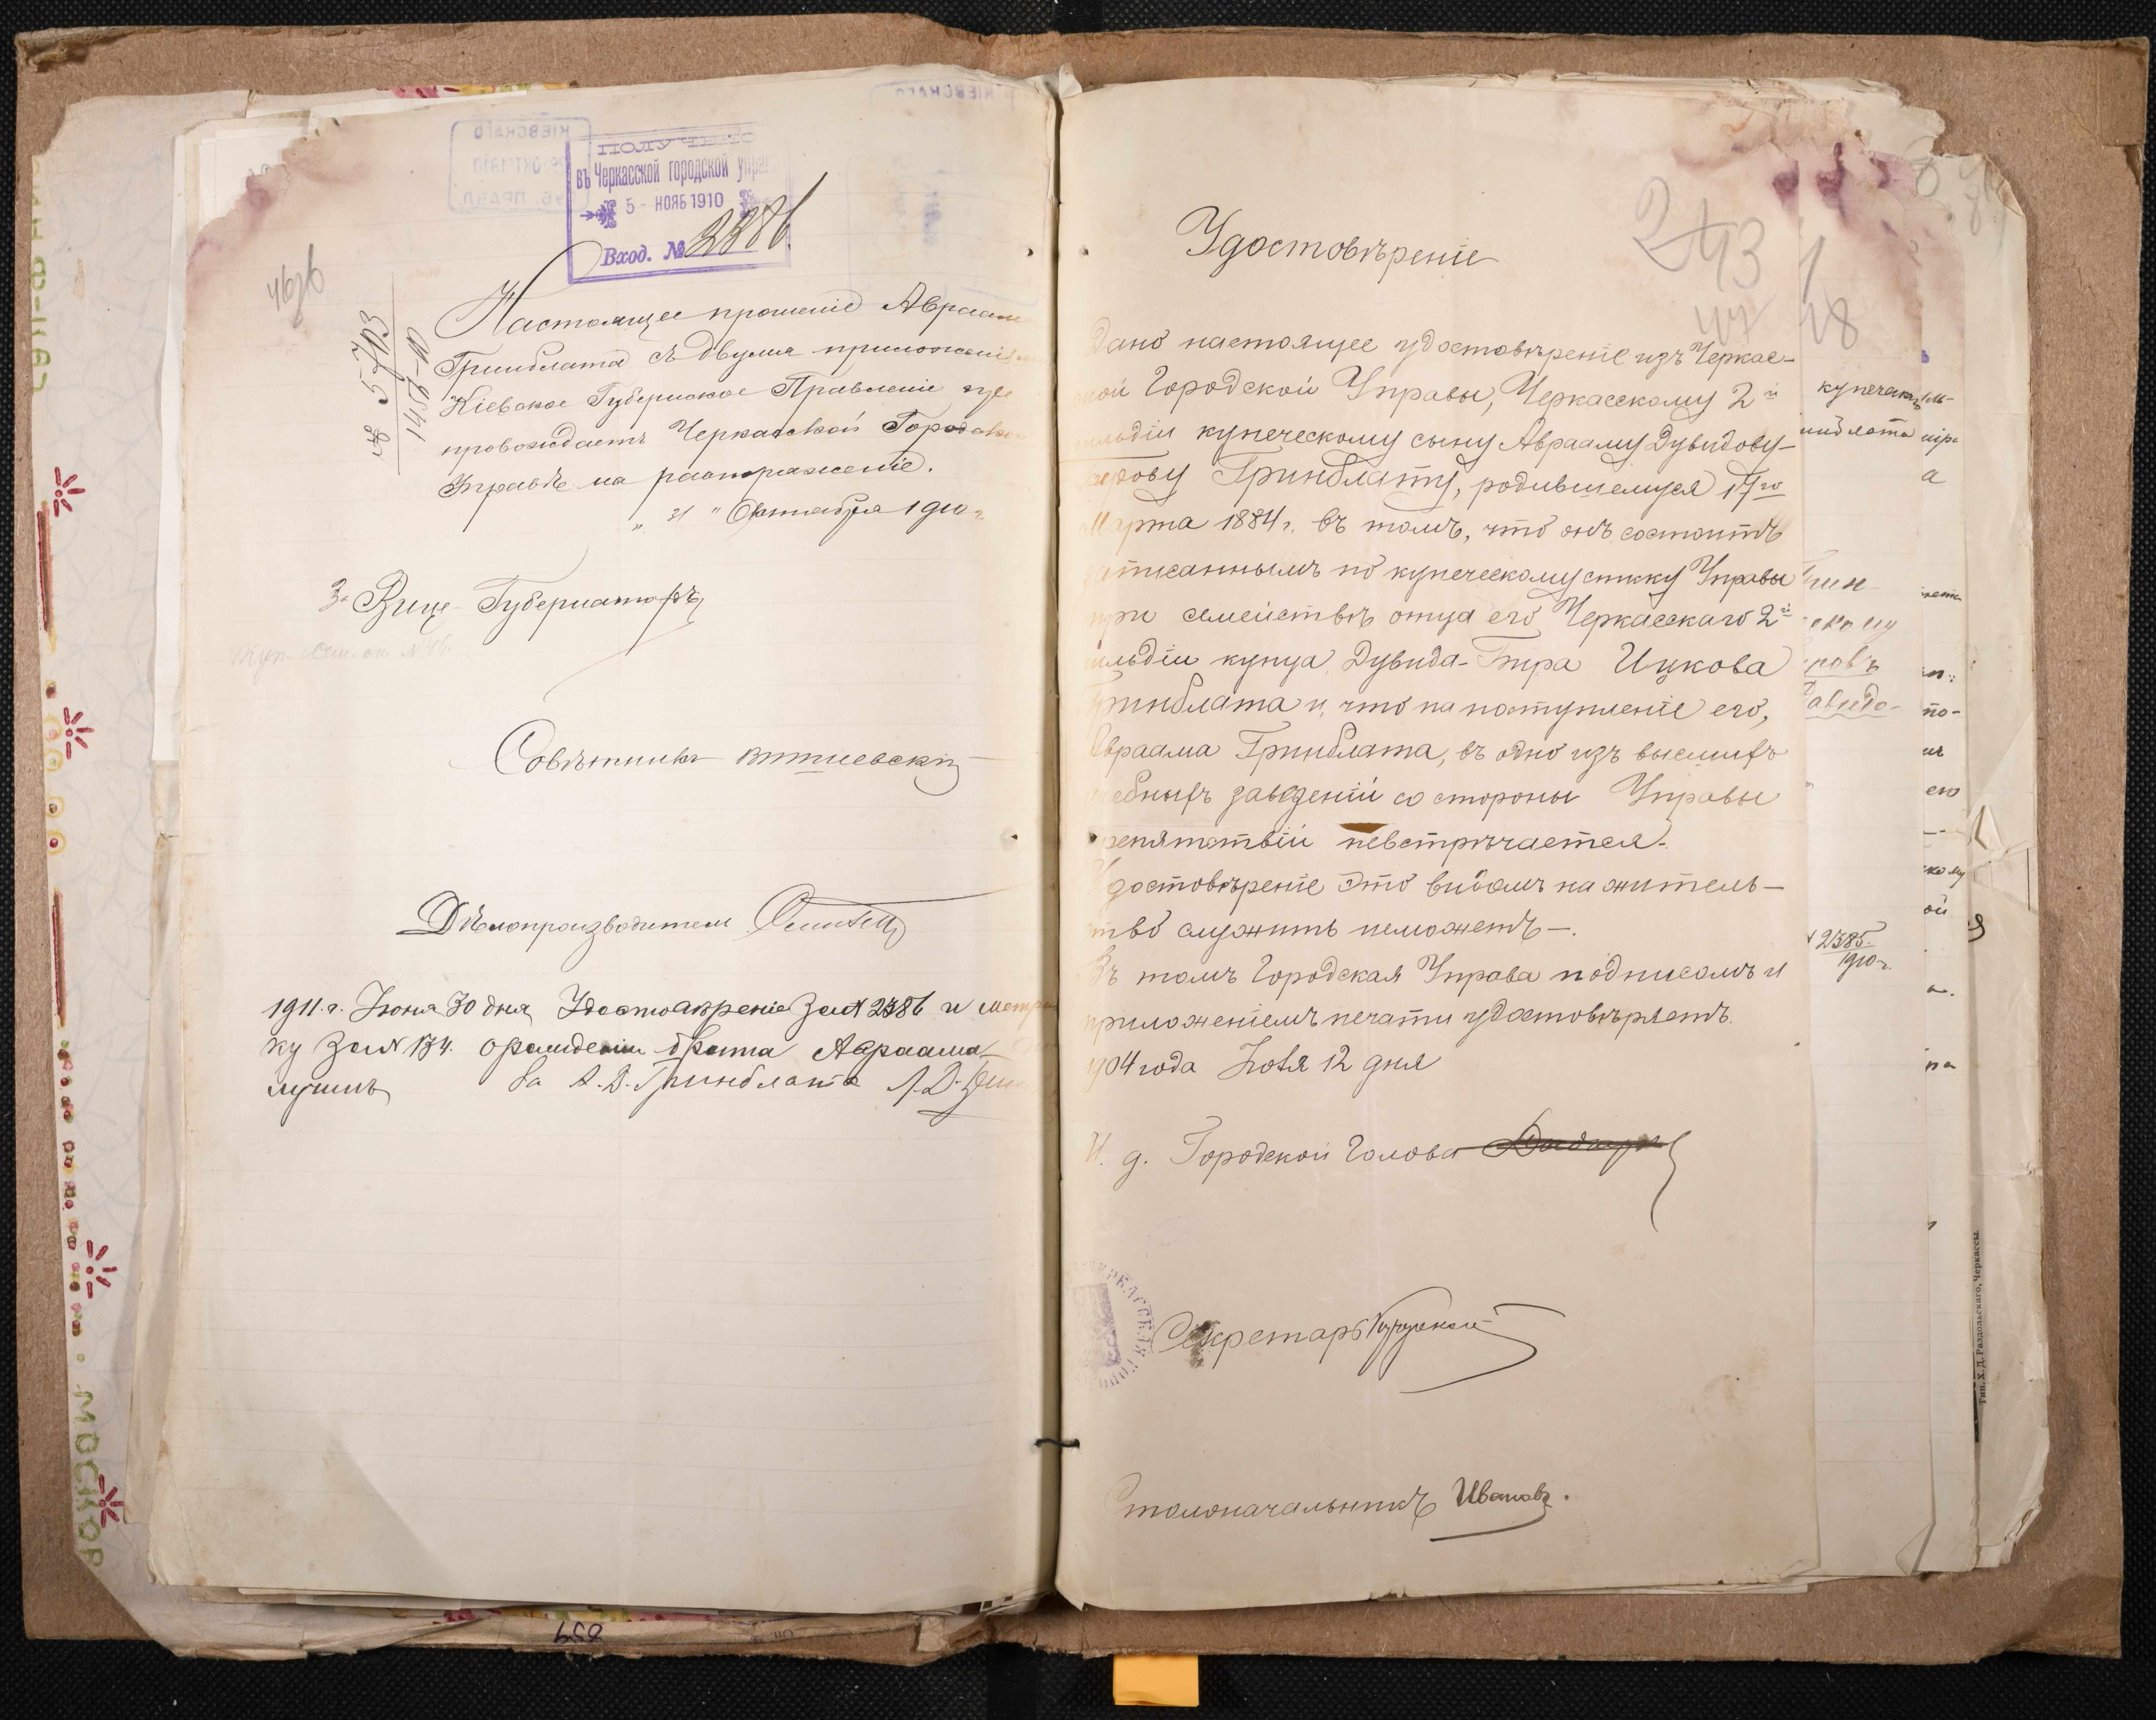 въ Черкасской городской упра
5 - НОЯБ 1910
Вход. № 2386
№ 5703
Настоящее прошеніе Авраам
Гринблата съ двумя приложеніями
Кіевское Губернское Правленіе пре
провождаетъ Черкасской Городской
Управѣ на распоряженіе.
" 21 " Октября 1910 г.
За Вице-Губернаторъ
Совѣтникъ
Дѣлопроизводитель
1911 г. Іюня 30 дня Удостовѣреніе за № 2386 и метри
ку за № 134. о рожденіи брата Авраама
лучилъ За А. Д. Гринблата Л. Д.
Удостовѣреніе
243
47
48
Дано настоящее удостовѣреніе изъ Черкас-
ской Городской Управы, Черкасскому 2й
гильдіи купеческому сыну Аврааму Дувидову-
Гринблату, родившемуся 17го
Марта 1884 г. въ томъ, что онъ состоитъ
записаннымъ по купеческому списку Управы
при семействѣ отца его Черкасскаго 2й
гильдіи купца Дувида-Бера Ицкова
Гринблата и, что на поступленіе его,
Авраама Гринблата, въ одно изъ высшихъ
учебныхъ заведеній со стороны Управы
препятствій невстрѣчается.
Удостовѣреніе это видомъ на житель-
тво служить неможетъ-.
Въ томъ Городская Управа подписомъ и
приложеніемъ печати удостовѣряетъ.
1904 года Іюля 12 дня
И. д. Городской Голова
Секретарь
Столоначальникъ Ивановъ.
купеческ
инблата
скому
Давидо-
№ 2385.
1910 г.
Тип. Х. Д. Раздольскаго, Черкассы
МОСКОВ